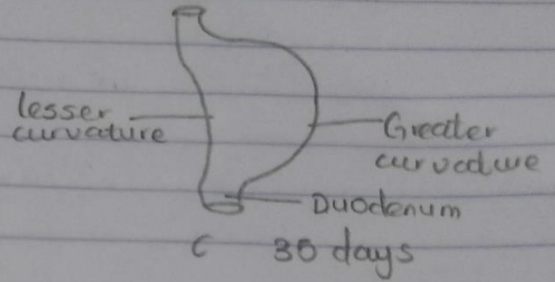 lesser
curvature
Greater
curvature
Duodenum
C 36 days